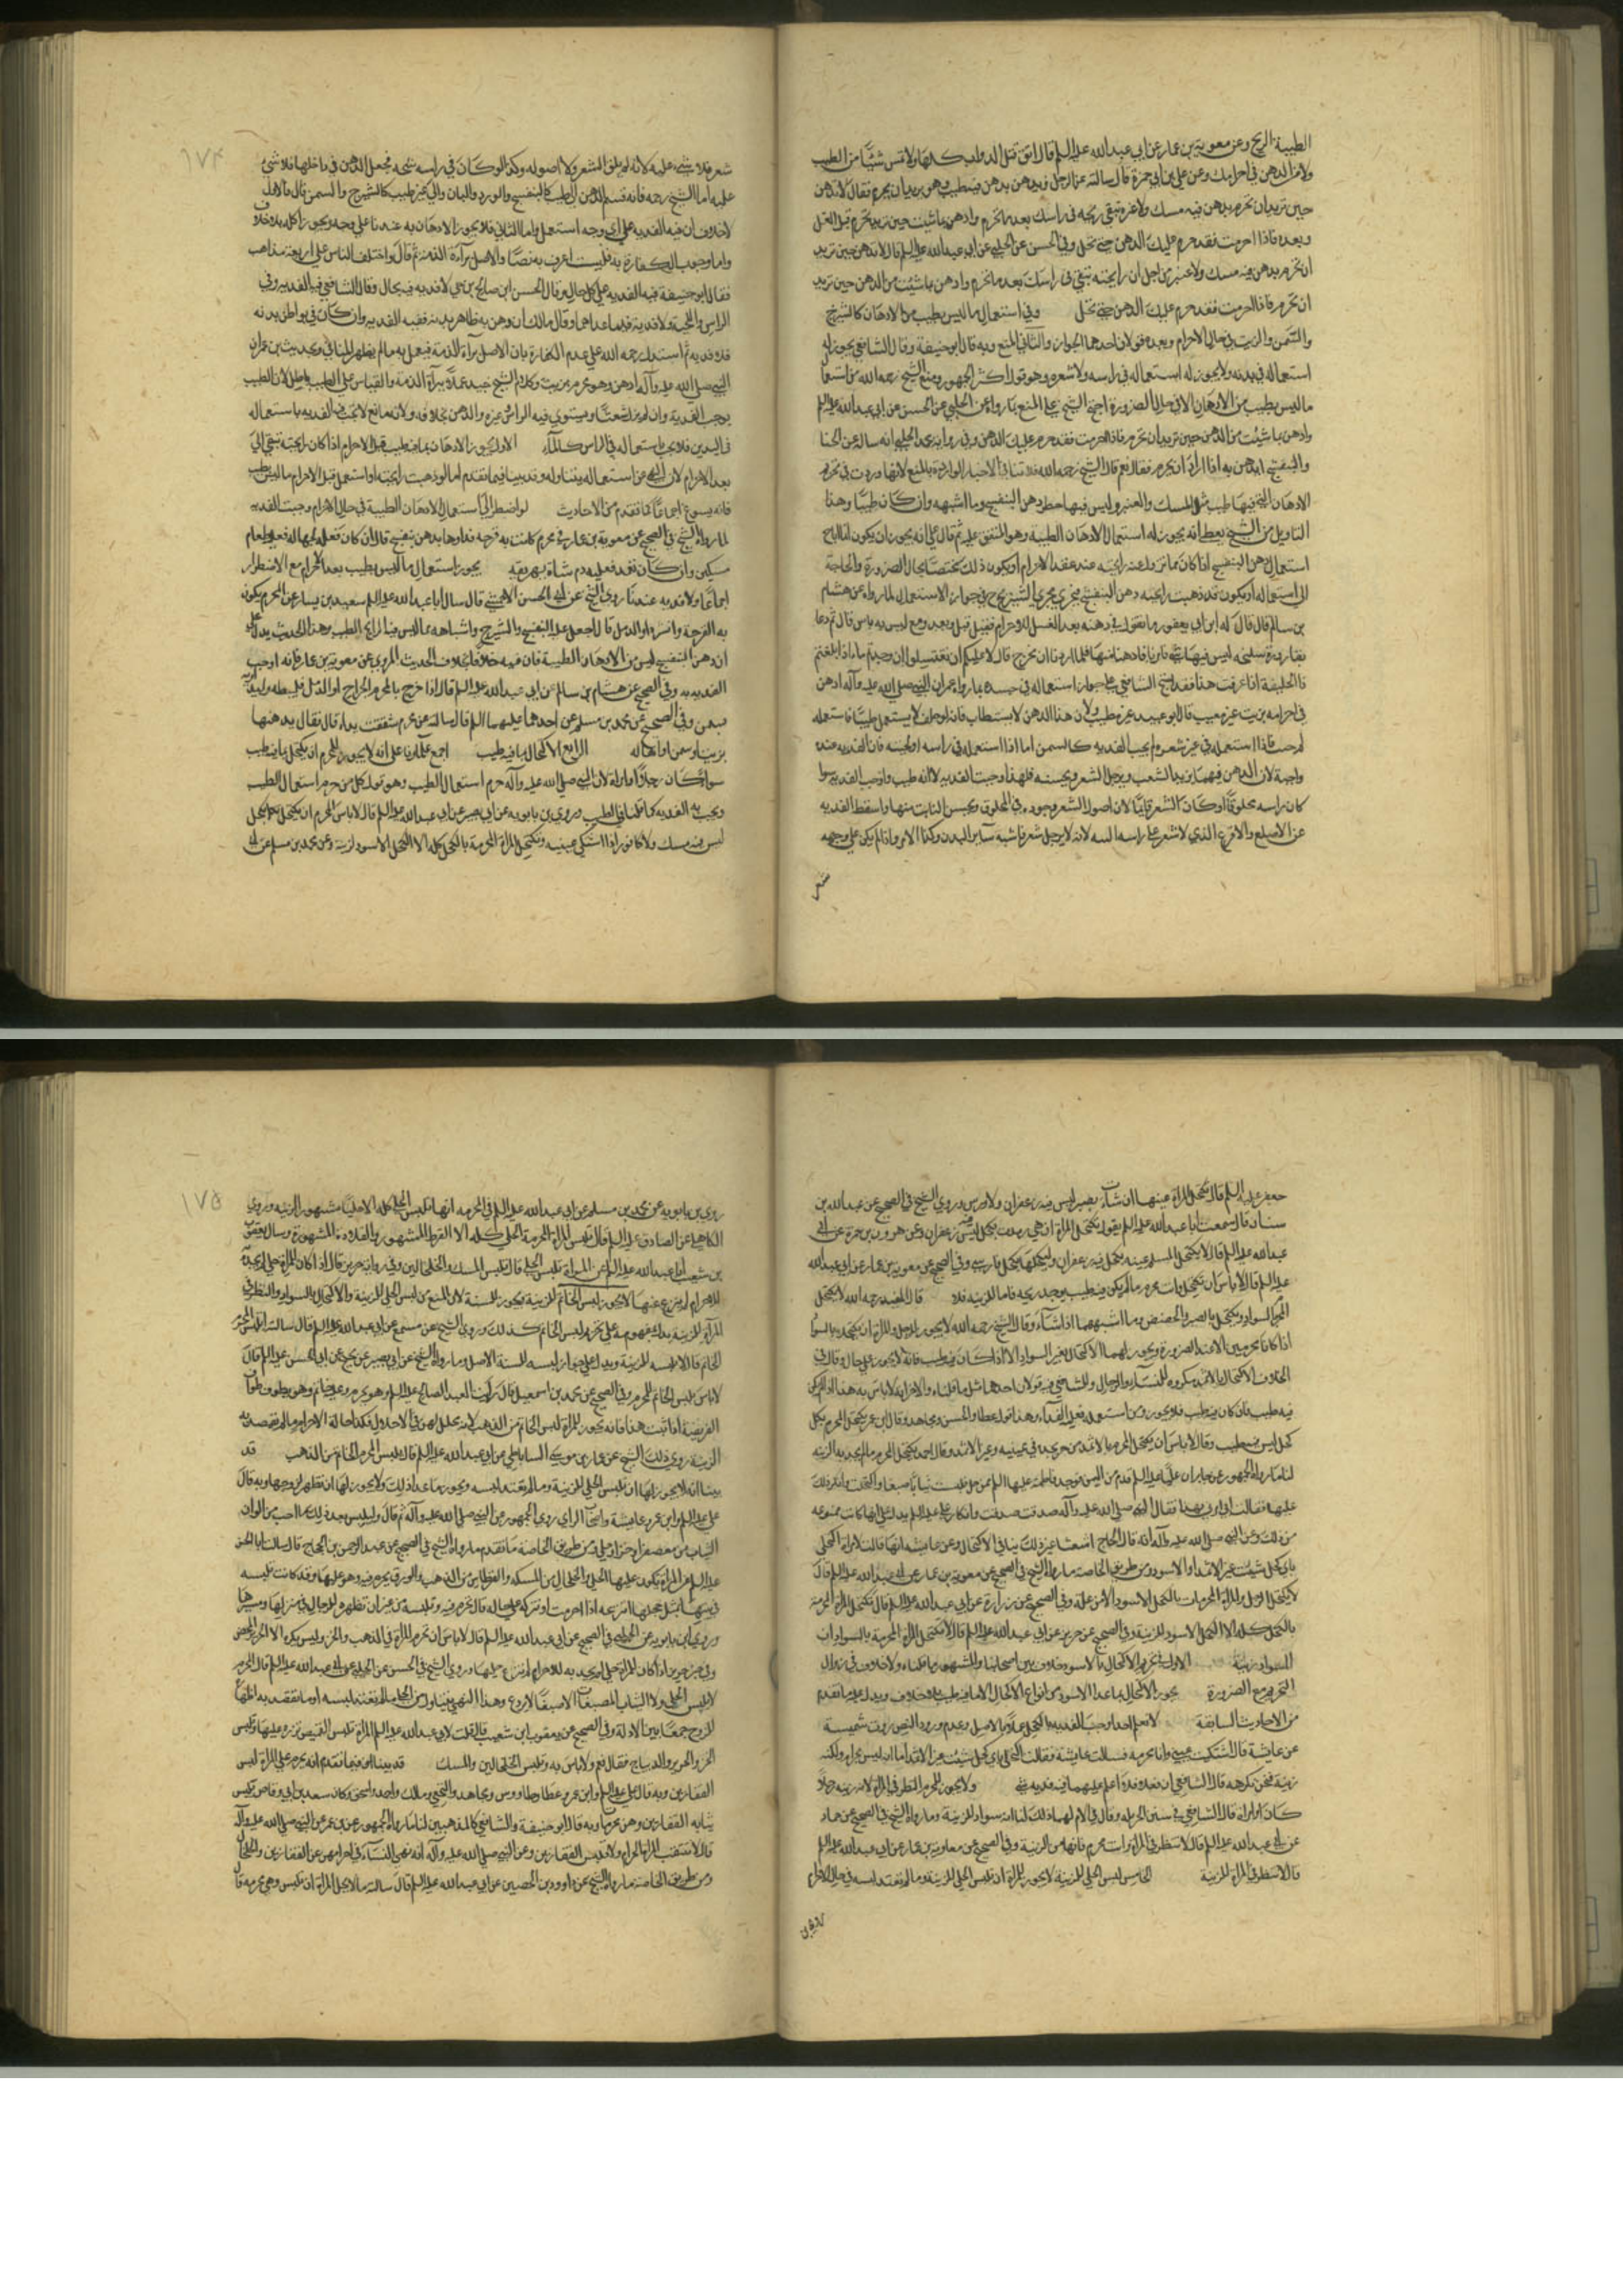 الطيبة الريح وعن معوية بن عمار عن ابي عبد الله عليه السلم قال اتق قتل الدواب كلها ولا تمس شيئا من الطيب
ولا من الدهن في احرامك وعن علي بن ابي حمزة قال سالته عن الرجل يدهن بدهن فيه طيب وهو يريد ان يحرم فقال لا تدهن
حين تريد ان تحرم بدهن فيه مسك ولا عنبر تبقى ريحه في راسك بعد ما تحرم وادهن بما شئت حين تريد ان تحرم قبل الغسل
وبعده فاذا احرمت فقد حرم عليك الدهن حتى تحل وفي الحسن عن الحلبي عن ابي عبد الله عليه السلم قال لا تدهن حين تريد
ان تحرم بدهن فيه مسك ولا عنبر من اجل ان رايحته تبقى في راسك بعد ما تحرم وادهن بما شئت من الدهن حين تريد
ان تحرم فاذا احرمت فقد حرم عليك الدهن حتى تحل وفي استعمال ما ليس بطيب من الادهان كالشيرج
والسمن والزيت في حال الاحرام وبعده قولان احدهما الجواز والثاني المنع وبه قال ابو حنيفة وقال الشافعي يجوز له
استعماله في بدنه ولا يجوز له استعماله في راسه ولا شعره وهو قول اكثر الجمهور ومنع الشيخ رحمه الله من استعمال
ما ليس بطيب من الادهان الا في حال الضرورة احتج الشيخ على المنع بما رواه عن الحلبي عن الحسن عن ابي عبد الله عليه السلم
وادهن بما شئت من الدهن حين تريد ان تحرم فاذا احرمت فقد حرم عليك الدهن وفي رواية الحلبي انه ساله عن الحنا
والبنفسج ايدهن به اذا اراد ان يحرم فقال نعم قال الشيخ رحمه الله فلا تنافي الاخبار الواردة بالمنع لانها وردت في تحريم
الادهان التي فيها طيب مثل المسك والعنبر وليس فيها حظر دهن البنفسج وما اشبهه وان كان طيبا وهذا
التاويل من الشيخ يعطي انه يجوز له استعمال الادهان الطيبة وهو المتفق عليه ثم قال على انه يجوز ان يكون انما اباح
استعمال دهن البنفسج اذا كان مما تزول عنه رايحته عند عقد الاحرام او يكون ذلك مختصا بحال الضرورة والحاجة
الى استعماله او يكون قد ذهبت رايحته دهن البنفسج فجرى مجرى الشيرج في جواز الاستعمال لما رواه عن هشام
بن سالم قال قال له ابن ابي يعفور ما تقول في دهنه بعد الغسل للاحرام فقال قبل وبعد ومع ليس به باس قال ثم دعا
بقارورة سليخة ليس فيها شيء فامرنا فادهنا منها فلما اردنا ان نخرج قال لا عليكم ان تغتسلوا ان وجدتم ماء اذا بلغتم
ذا الحليفة اذا عرفت هذا فقد احتج الشافعي على جواز استعماله في جسده بما رواه عمران النبي صلى الله عليه وآله ادهن
في احرامه بزيت غير مطيب قال ابو عبيد غير مطيب ولان هذا الدهن لا يستطاب
واجبة لان الدهن فيهما يزيد الشعث ويرجل الشعر ويحسنه فلهذا وجبت الفدية لا انه طيب واوجب الفدية سوا
كان راسه محلوقا او كان الشعر نابتا لان اصول الشعر موجودة في المحلوق ويحسن النابت منها واسقط الفدية
عن الاصلع والاقرع الذي لا شعر على راسه البتة لانه لا يرجل شعرا فاشبه ساير البدن وكذا الامرد اذا لم يكن على وجهه
شعر
١٧٤
شعر فلا شيء عليه لانه لم يلق الشعر ولا اصوله وكذا لو كان في راسه شجة فجعل الدهن في داخلها فلا شيء
عليه اما الشيخ رحمه الله فانه قسم الدهن الى طيب كالبنفسج والورد والبان والى غير طيب كالشيرج والسمن قال فالاول
لا خلاف ان فيه الفدية على اي وجه استعمل واما الثاني فلا يجوز الادهان به عندنا على وجه ويجوز اكله بلا خلاف
واما وجوب الكفارة به فلست اعرف به نصا والاصل براءة الذمة ثم قال واختلف الناس على اربعة مذاهب
فقال ابو حنيفة فيه الفدية على كل حال وقال الحسن ابن صالح بن حي لا فدية فيه بحال وقال الشافعي فيه الفدية في
الراس واللحية ولا فدية فيما عداهما وقال مالك ان دهن به ظاهر بدنه ففيه الفدية وان كان في بواطن بدنه
فلا فدية ثم استدل رحمه الله على عدم الكفارة بان الاصل براءة الذمة فيعمل به ما لم يظهر المنافي وبحديث بن عمر ان
النبي صلى الله عليه وآله ادهن وهو محرم بزيت وكلام الشيخ جيد عملا ببراءة الذمة والقياس على الطيب باطل لان الطيب
يوجب الفدية وان لم يزل شعثا ويستوي فيه الراس وغيره والدهن بخلافه ولانه مايع لا تجب الفدية باستعماله
في اليدين فلا يجب باستعماله في الراس كالماء الاول لا يجوز الادهان بما فيه طيب قبل الاحرام اذا كان رايحته تبقى الى
بعد الاحرام لان النهي عن استعماله يتناوله وقد بينا فيما تقدم اما لو ذهبت رايحته او استعمل قبل الاحرام ما ليس بطيب
فانه يسوغ اجماعا لما تقدم من الاحاديث لو اضطر الى استعمال الادهان الطيبة في حال الاحرام وجبت الفدية
لما رواه الشيخ في الصحيح عن معوية بن عمار في محرم كانت به قرحة فداواها بدهن بنفسج قال ان كان فعله بجهالة فعليه طعام
مسكين وان كان تعمد فعليه دم شاة يهريقه يجوز استعمال ما ليس بطيب بعد الاحرام مع الاضطرار
اجماعا ولا فدية عندنا روى الشيخ عن ابي الحسن الاحمسي قال سال ابا عبد الله عليه السلم سعيد بن يسار عن المحرم يكون
به القرحة والبثرة او الدمل قال اجعل عليه البنفسج والشيرج واشباهه مما ليس فيه الرايح الطيبة وهذا الحديث يدل على
ان دهن البنفسج ليس من الادهان الطيبة فان فيه خلافا بخلاف الحديث المروي عن معوية بن عمار فانه اوجب
الفدية به وفي الصحيح عن هشام بن سالم عن ابي عبد الله عليه السلم قال اذا خرج بالمحرم الخراج او الدمل فليبطه وليداوه
بسمن وفي الصحيح عن محمد بن مسلم عن احدهما عليهما السلم قال سالته عن محرم تشققت يداه قال فقال يدهنها
بزيت او سمن او اهالة الرابع الاكتحال بما فيه طيب اجمع علماؤنا على انه لا يجوز للمحرم ان يكتحل بما فيه طيب
سواء كان رجلا او امراة لان النبي صلى الله عليه وآله حرم استعمال الطيب وهو قول كل من حرم استعمال الطيب
وتجب به الفدية كما قلنا في الطيب وروى بن بابويه عن ابي بصير عن ابي عبد الله عليه السلم قال لا باس للمحرم ان يكتحل بكحل
ليس فيه مسك ولا كافور اذا اشتكى عينيه وتكتحل المراة المحرمة بالكحل كله الا الكحل الاسود لزينة وعن محمد بن مسلم عن ابي
جعفر عليه السلم قال تكتحل المراة عينها ان شاءت بصبر ليس فيه زعفران ولا ورس وروى الشيخ في الصحيح عن عبد الله بن
سنان قال سمعت ابا عبد الله عليه السلم يقول
عبد الله عليه السلم قال لا يكحل المسلم عينيه بكحل فيه زعفران وليكحلها بكحل فارسي وفي الصحيح عن معوية بن عمار عن ابي عبد الله
عليه السلم قال لا باس ان تكتحل وانت محرم ما لم يكن فيه طيب يوجد ريحه فاما للزينة فلا قال المفيد رحمه الله لا يكتحل
المحرم بالسواد ويكتحل بالصبر والحضض وما اشبههما اذا شاء وقال الشيخ رحمه الله لا يجوز للرجل والمراة ان يكتحلا بالسواد
اذا كانا محرمين الا عند الضرورة ويجوز لهما الاكتحال بغير السواد الا اذا كان فيه طيب فانه لا يجوز على حال وقال في
الخلاف الاكتحال بالاثمد مكروه للنساء والرجال وللشافعي فيه قولان احدهما مثل ما قلناه والاخر انه لا باس به هذا اذا لم يكن
فيه طيب فان كان فيه طيب فلا يجوز ومن استعمله فعليه الفداء وهذا قول عطا والحسن ومجاهد وقال ابن عمر يكتحل المحرم بكل
كحل ليس فيه طيب وقال لا باس ان يكتحل المحرم
لنا ما رواه الجمهور عن جابر ان عليا عليه السلم قدم من اليمن فوجد فاطمة عليها السلم ممن حل فلبست ثيابا صبيغا واكتحلت فانكر ذلك
عليها فقالت ابي امرني بهذا فقال النبي صلى الله عليه وآله صدقت صدقت وانكار علي عليه السلم يدل على انها كانت ممنوعة
من ذلك وعن النبي صلى الله عليه وآله انه قال الحاج اشعث اغبر وذلك ينافي الاكتحال وعن عايشة انها قالت لامراة اكتحلي
باي كحل شئت غير الاثمد او الاسود ومن طريق الخاصة ما رواه الشيخ في الصحيح عن معوية بن عمار عن ابي عبد الله عليه السلم قال
لا يكتحل الرجل والمراة المحرمان بالكحل الاسود الا من علة وفي الصحيح عن زرارة عن ابي عبد الله عليه السلم قال تكتحل المراة المحرمة
بالكحل كله الا الكحل الاسود للزينة وفي الصحيح عن حريز عن ابي عبد الله عليه السلم قال لا تكتحل المراة المحرمة بالسواد ان
السواد زينة الاول تحريم الاكتحال بالاسود خلاف بين اصحابنا والمشهور ما قلناه ولا خلاف في زوال
التحريم مع الضرورة يجوز الاكتحال بما عدا الاسود من انواع الاكتحال الا ما فيه طيب بلا خلاف ويدل عليه ما تقدم
من الاحاديث السابقة لا نعلم احدا اوجب الفدية بالكحل عملا بالاصل وعدم ورود النص روت شميسة
عن عايشة قالت اشتكيت عيني وانا محرمة فسالت عايشة فقالت اكتحلي باي كحل شئت غير الاثمد اما انه ليس بحرام ولكنه
زينة فنحن نكرهه قال الشافعي ان فعلا فلا اعلم عليهما فيه فدية بشيء ولا يجوز للمحرم النظر في المراة لانه زينة رجلا
كان او امراة قال الشافعي في سنن الحرملة وقال في الام لهما ذلك لنا انه سواد للزينة وما رواه الشيخ في الصحيح عن حماد
عن ابي عبد الله عليه السلم قال لا تنظر في المراة وانت محرم فانها من الزينة وفي الصحيح عن معاوية بن عمار عن ابي عبد الله عليه السلم
قال لا تنظر في المراة للزينة الخامس لبس الحلي للزينة لا يجوز للمراة ان تلبس الحلي للزينة وما لم تعتد لبسه في حال الاحرام
١٧٥
روى بن بابويه عن محمد بن مسلم عن ابي عبد الله عليه السلم في المحرمة انها تلبس الحلي كله الا حليا مشهورا لزينة وروى
الكاهلي عن الصادق عليه السلم قال تلبس المراة المحرمة الحلي كله الا القرط المشهور والقلادة المشهورة وسال يعقوب
بن شعيب ابا عبد الله عليه السلم عن المراة تلبس الحلي قال تلبس المسك والخلخالين وفي رواية حريز قال اذا كان للمراة حلي لم تحدثه
للاحرام لم ينزع عنها لا يجوز لبس الخاتم للزينة ويجوز للسنة لان المنع من لبس الحلي للزينة والاكتحال بالسواد والنظر في
المراة للزينة يدل بمفهومه على تحريم لبس الخاتم كذلك وروى الشيخ عن مسمع عن ابي عبد الله عليه السلم قال سالته ايلبس المحرم
الخاتم قال لا يلبسه للزينة ويدل على جواز لبسه للسنة الاصل وما رواه الشيخ عن ابي بصير عن نجيح عن ابي الحسن عليه السلم قال
لا باس بلبس الخاتم للمحرم وفي الصحيح عن محمد بن اسمعيل قال رايت العبد الصالح عليه السلم وهو محرم وعليه خاتم وهو يطوف طواف
الفريضة اذا ثبت هذا فانه يجوز للمراة لبس الخاتم من الذهب لانه يحل لهن في الاحلال فكذا حالة الاحرام ما لم تقصد به
الزينة روى ذلك الشيخ عن عمار بن موسى الساباطي عن ابي عبد الله عليه السلم قال تلبس المراة المحرمة الخاتم من الذهب قد
بينا انه لا يجوز لها ان تلبس الحلي للزينة وما لم تعتد لبسه ويجوز ما عدا ذلك ولا يجوز لها ان تظهره لزوجها وبه قال
علي عليه السلم وابن عمر وعايشة واصحاب الراي روى الجمهور عن النبي صلى الله عليه وآله ثم قال وليلبسن بعد ذلك ما احببن من الوان
الثياب من معصفر او خز او حلي ومن طريق الخاصة ما تقدم وما رواه الشيخ في الصحيح عن عبد الرحمن بن الحجاج قال سالت ابا الحسن
عليه السلم عن المراة يكون عليها الحلي والخلخال والمسكة والقرطان من الذهب والورق تحرم فيه وهو عليها وقد كانت تلبسه
في بيتها قبل حجها اتنزعه اذا احرمت او تتركه على حاله قال تحرم فيه وتلبسه من غير ان تظهره للرجال في مركبها ومسيرها
وروى ابن بابويه عن الحلبي في الصحيح عن ابي عبد الله عليه السلم قال لا باس ان تحرم المراة في الذهب والخز وليس يكره الا الحرير المحض
وفي خبر حريز اذا كان للمراة حلي لم تحدثه للاحرام لم تنزع حليها وروى الشيخ في الحسن عن الحلبي عن ابي عبد الله عليه السلم قال المحرمة
لا تلبس الحلي ولا الثياب المصبغات الا صبغا لا يردع وهذا النهي يتناول من الحلي ما لم تعتد لبسه او ما تقصد به اظهارها
للزوج جمعا بين الادلة وفي الصحيح عن يعقوب ابن شعيب قال قلت لابي عبد الله عليه السلم المراة تلبس القميص تزره عليها وتلبس
الخز والحرير والديباج فقال نعم ولا باس به وتلبس الخلخالين والمسك قد بينا فيما تقدم انه يحرم على المراة لبس
القفازين وبه قال علي عليه السلم وابن عمر وعطا وطاوس ومجاهد والنخعي ومالك واحمد واسحق وكان سعد بن ابي وقاص يلبس
بناته القفازين وهن محرمات وبه قال ابو حنيفة وللشافعي كالمذهبين لنا ما رواه الجمهور عن بن عمر عن النبي صلى الله عليه وآله
قال لا تنتقب المراة الحرام ولا تلبس القفازين وعن النبي صلى الله عليه وآله انه نهى النساء في احرامهن عن القفازين والخلخال
ومن طريق الخاصة ما رواه الشيخ عن داود بن الحصين عن ابي عبد الله عليه السلم قال سالته ما يحل للمراة ان تلبس وهي محرمة قال